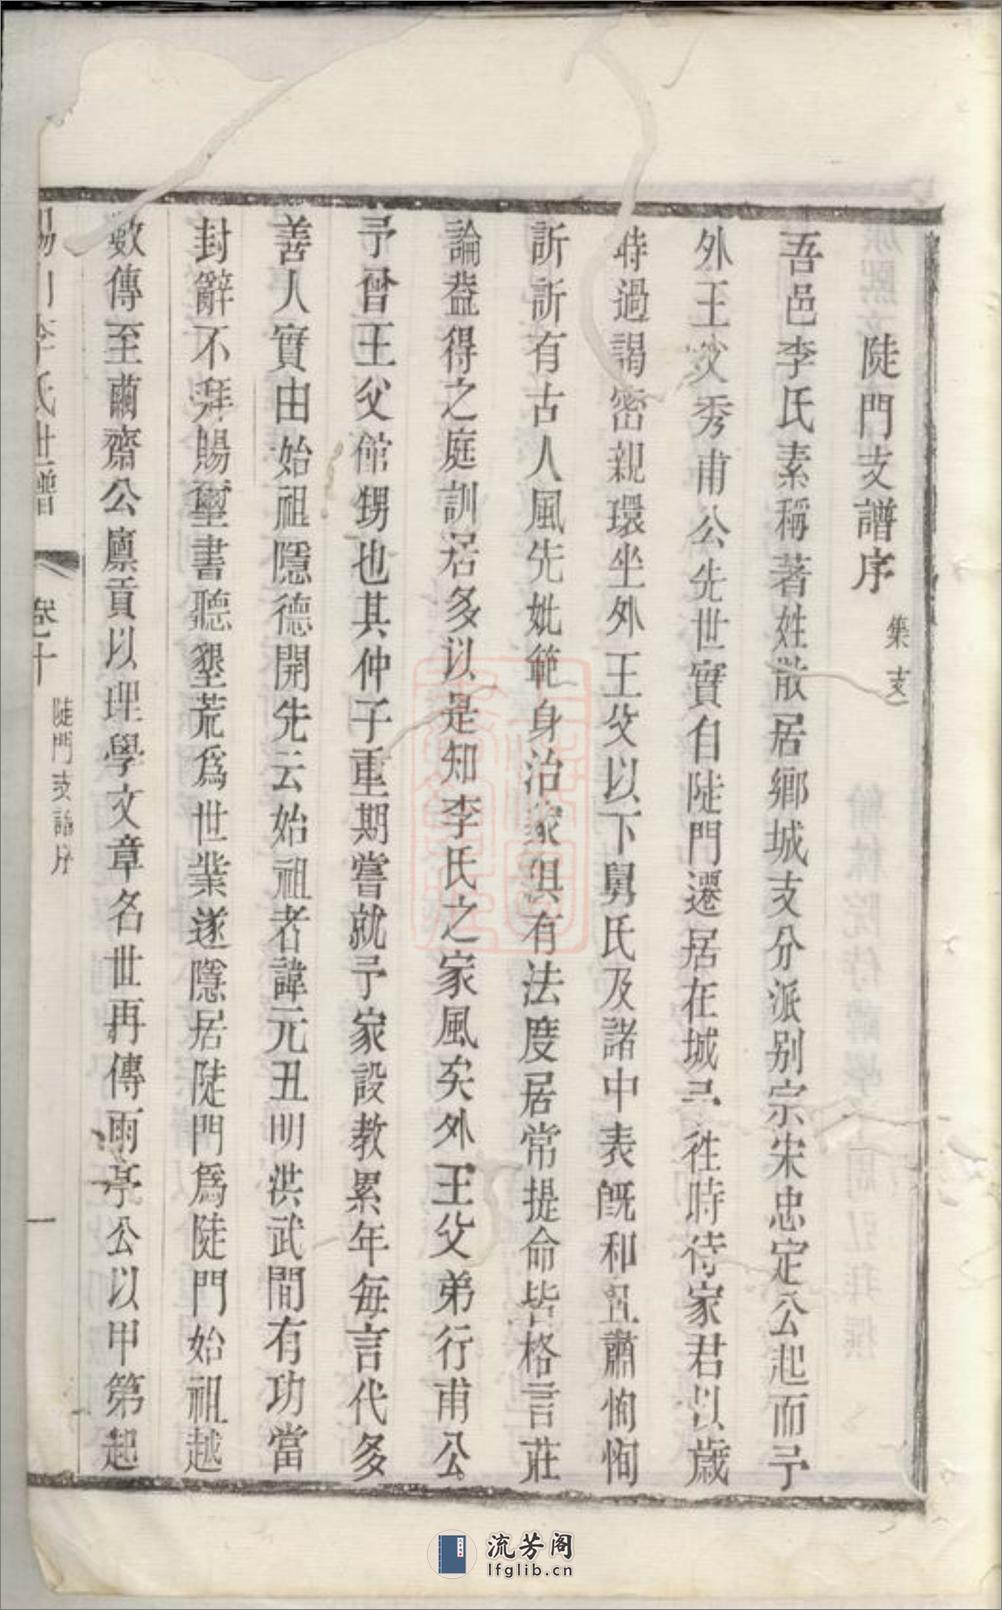 陡門支譜序
集支
吾邑李氏素稱著姓散居鄉城支分派别宗宋忠定公起而予
外王父秀甫公先世實自陡門遷居在城予往時待家君以歲
時過謁密親環坐外王父以下舅氏及諸中表旣和且肅恂恂
訢訢有古人風先妣範身治家俱有法度居常提命皆格言莊
論葢得之庭訓居多以是知李氏之家風矣外王父弟行甫公
予曾王父館甥也其仲子重期嘗就予家設教累年每言代多
善人實由始祖隱德開先云始祖者諱元丑明洪武間有功當
封辭不拜賜璽書聽墾荒爲世業遂隱居陡門爲陡門始祖越
數傳至繭齋公廪貢以理學文章名世再傳雨亭公以甲第起
李氏世譜
卷十
陡門支譜序
一
流芳阁
lfglib.cn